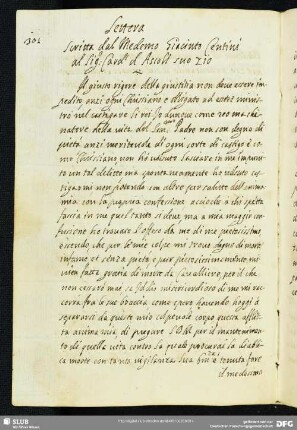 301
Lettera
Scritta dal Medemo Giacinto Centini
al Sig.r Card.le d'Ascoli suo Zio
Il giusto rigore della giustitia non deve essere im
pedito anzi ogni Christiano è obligato ad esser mini
stro nel castigare li rei, Io dunque come reo ma che
natore della vita del San.mo Padre non son degno di
pietà anzi meritevole di ogni sorte di castigo è co
me Christiano non hò voluto lasciare in me impuni
to un tal delitto ma spontaneamente hò voluto cas
tigarmi non potendo in altro per salute dell'anima
mia con la presente confessione accioche à chi spetta
faccia in me quel tanto si deve, ma à mia maggior con
fusione hò trovato l'offeso da me di me pietosissimo
essendo, che per le mie colpe mi trovo degno di morte
infame et senza pietà è pur pietosissimamente mi
vien fatta gratia di morte da Cavalliero, per il che
non cesserò mai se Iddio misericordioso di me mi rac
corrà frà le sue braccia come spero havendo hoggi à
separarsi da questo mio colpevole corpo questa afflit
ta anima mia, di pregare Iddio per il mantenimen
to di quella vita contro la quale procurai la
morte con tanta vigilanza, sua tenuta fare
il medesimo
SLUB
DFG